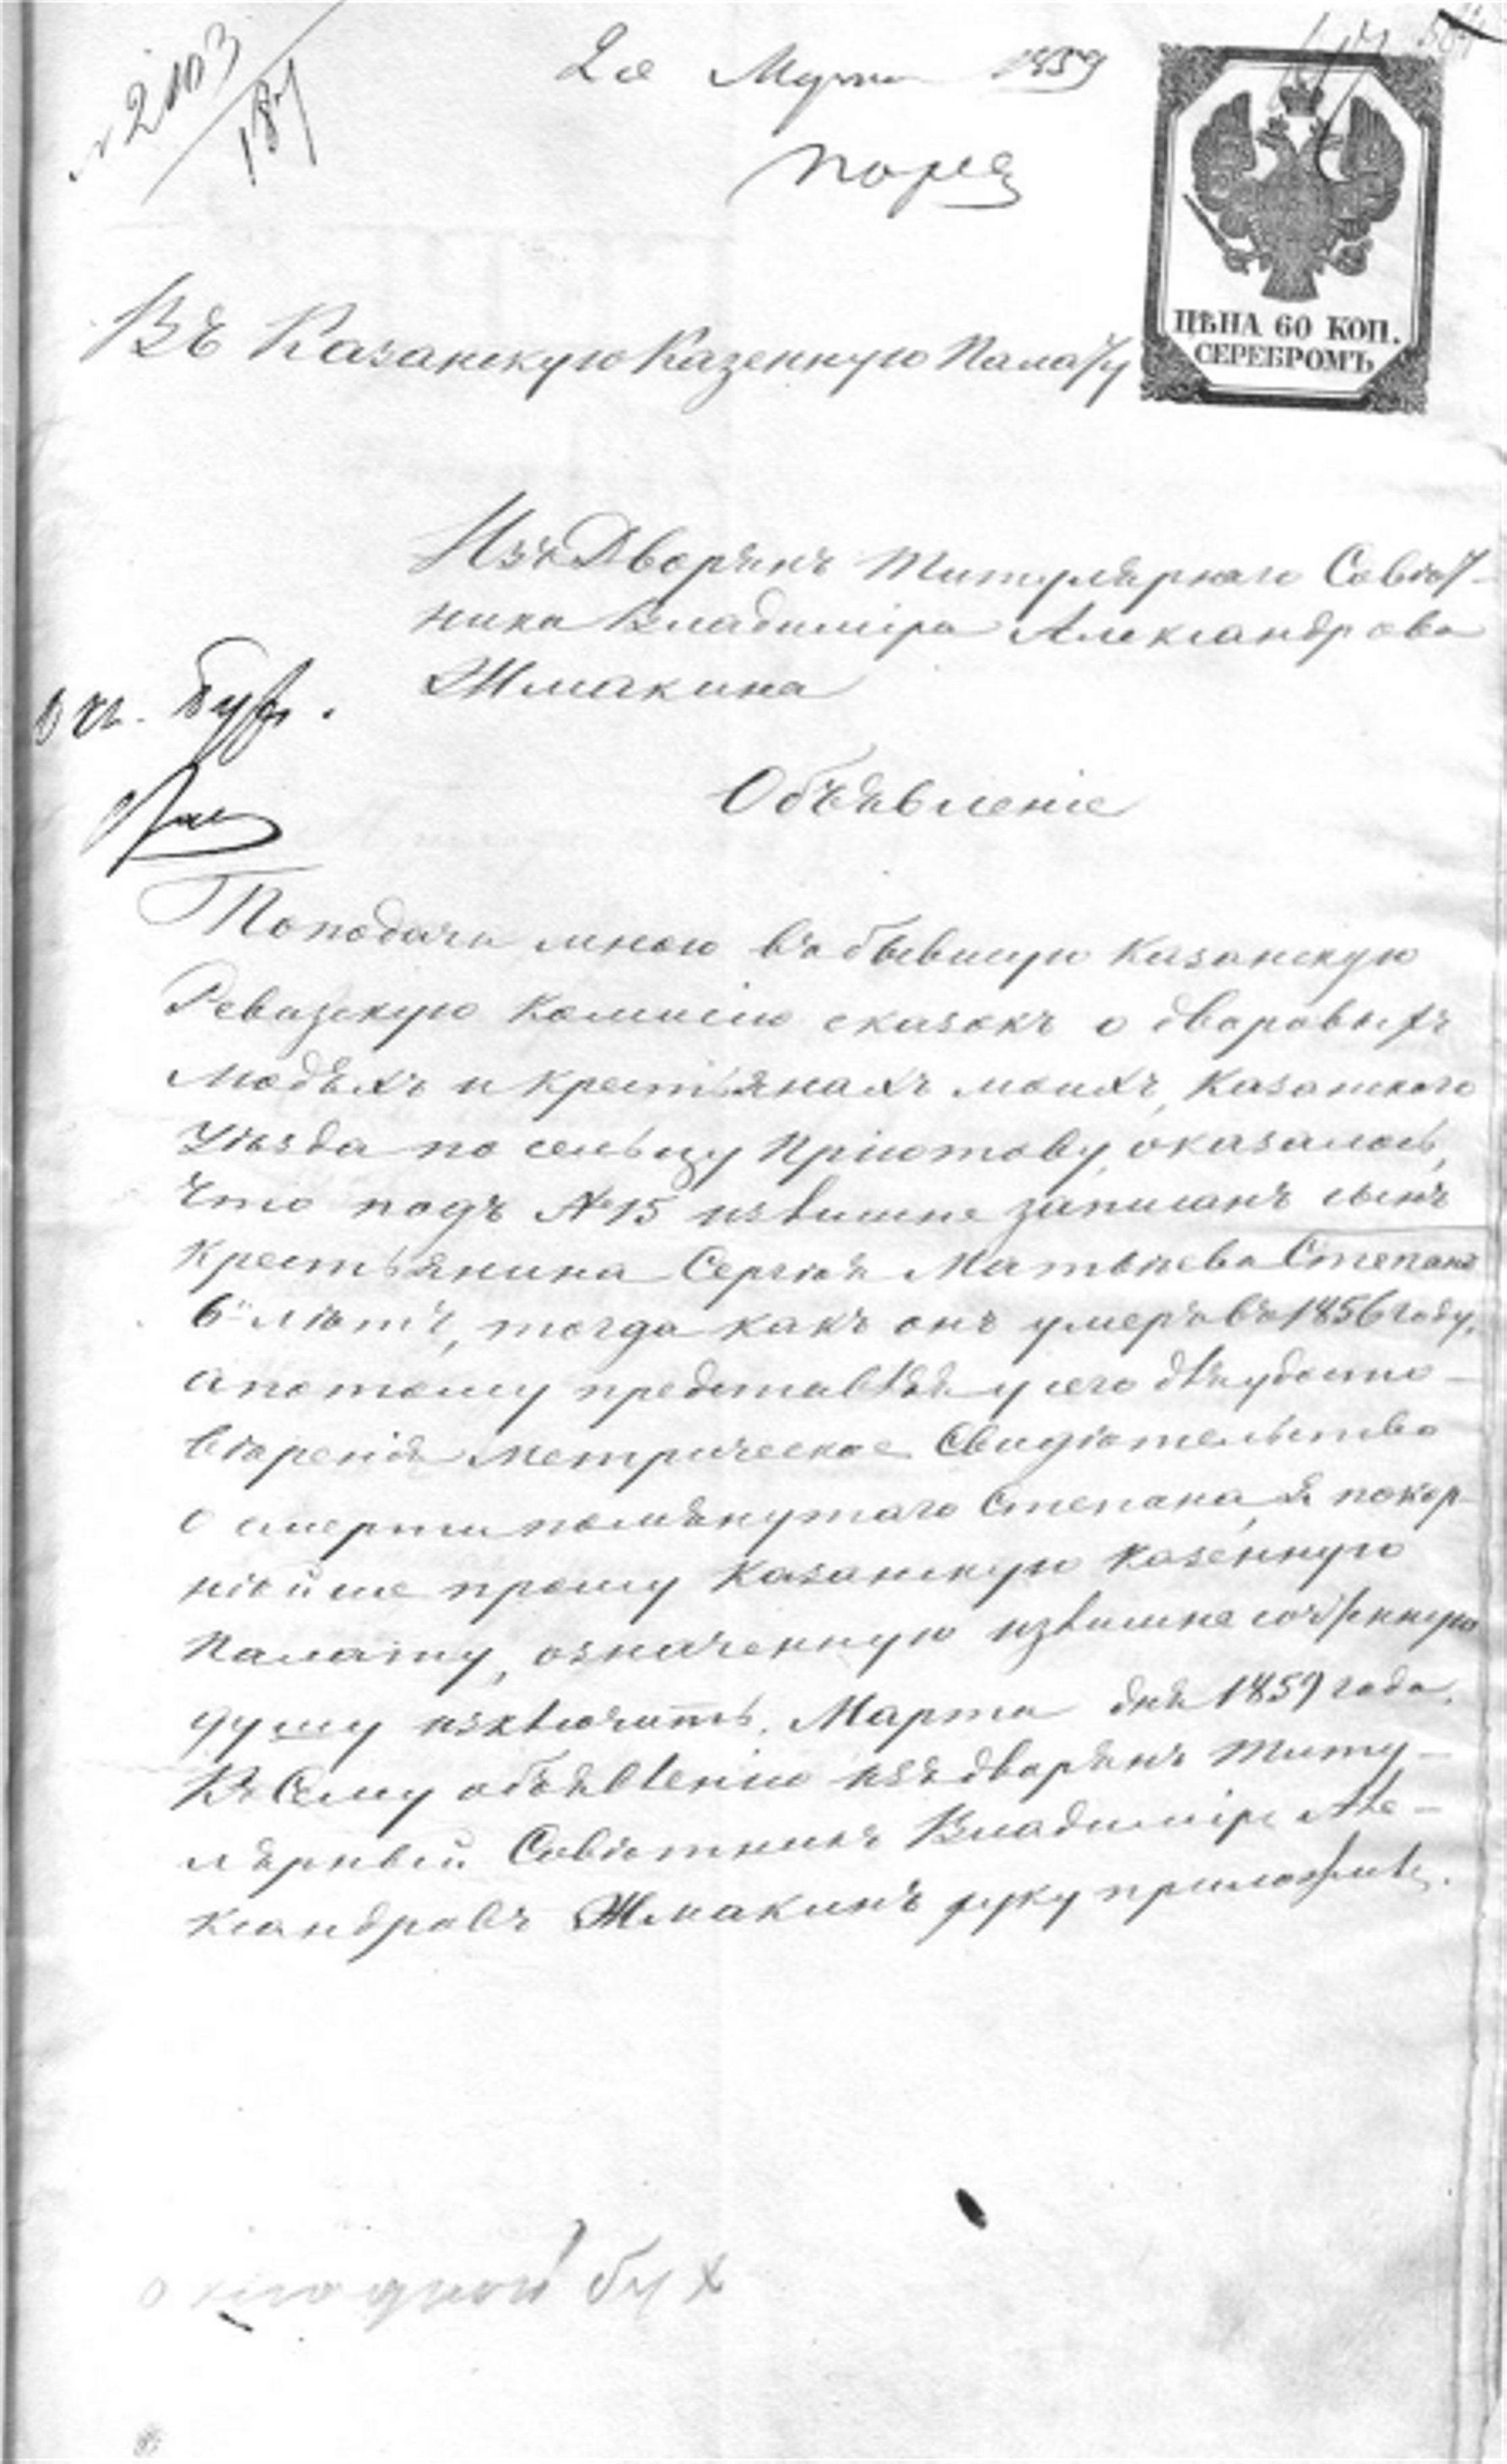 № 2103
187
2 Марта 1859
ЦѢНА 60 КОП.
СЕРЕБРОМЪ
Въ Казанскую Казенную Палату
Изъ Дворянъ Титулярнаго Совѣт-
ника Владиміра Александрова
Жмакина
Объявленіе
По подачи мною въ бывшую Казанскую
Ревизскую Комисію сказокъ о дворовыхъ
людяхъ и крестьянахъ моихъ, Казанскаго
Уѣзда по сельцу Пріютову, оказалось,
что подъ №15 излишне записанъ сынъ
крестьянина Сергѣя Матвѣева Степанъ
6ти лѣтъ, тогда какъ онъ умеръ въ 1856 году,
а потому представляя у сего для удосто-
вѣренія метрическое Свидѣтельство
о смерти помянутаго Степана, я покор-
нѣйше прошу Казанскую Казенную
Палату, означенную излишне
душу изключить. Марта дня 1859 года.
Къ Сему объявленію изъ дворянъ Титу-
лярный Совѣтникъ Владиміръ Але-
ксандровъ Жмакинъ руку приложилъ.